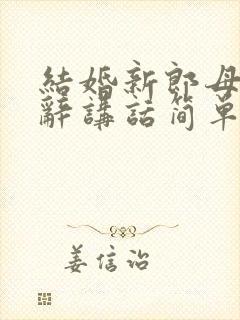 結婚新郎母
辭講話简单
姜信治